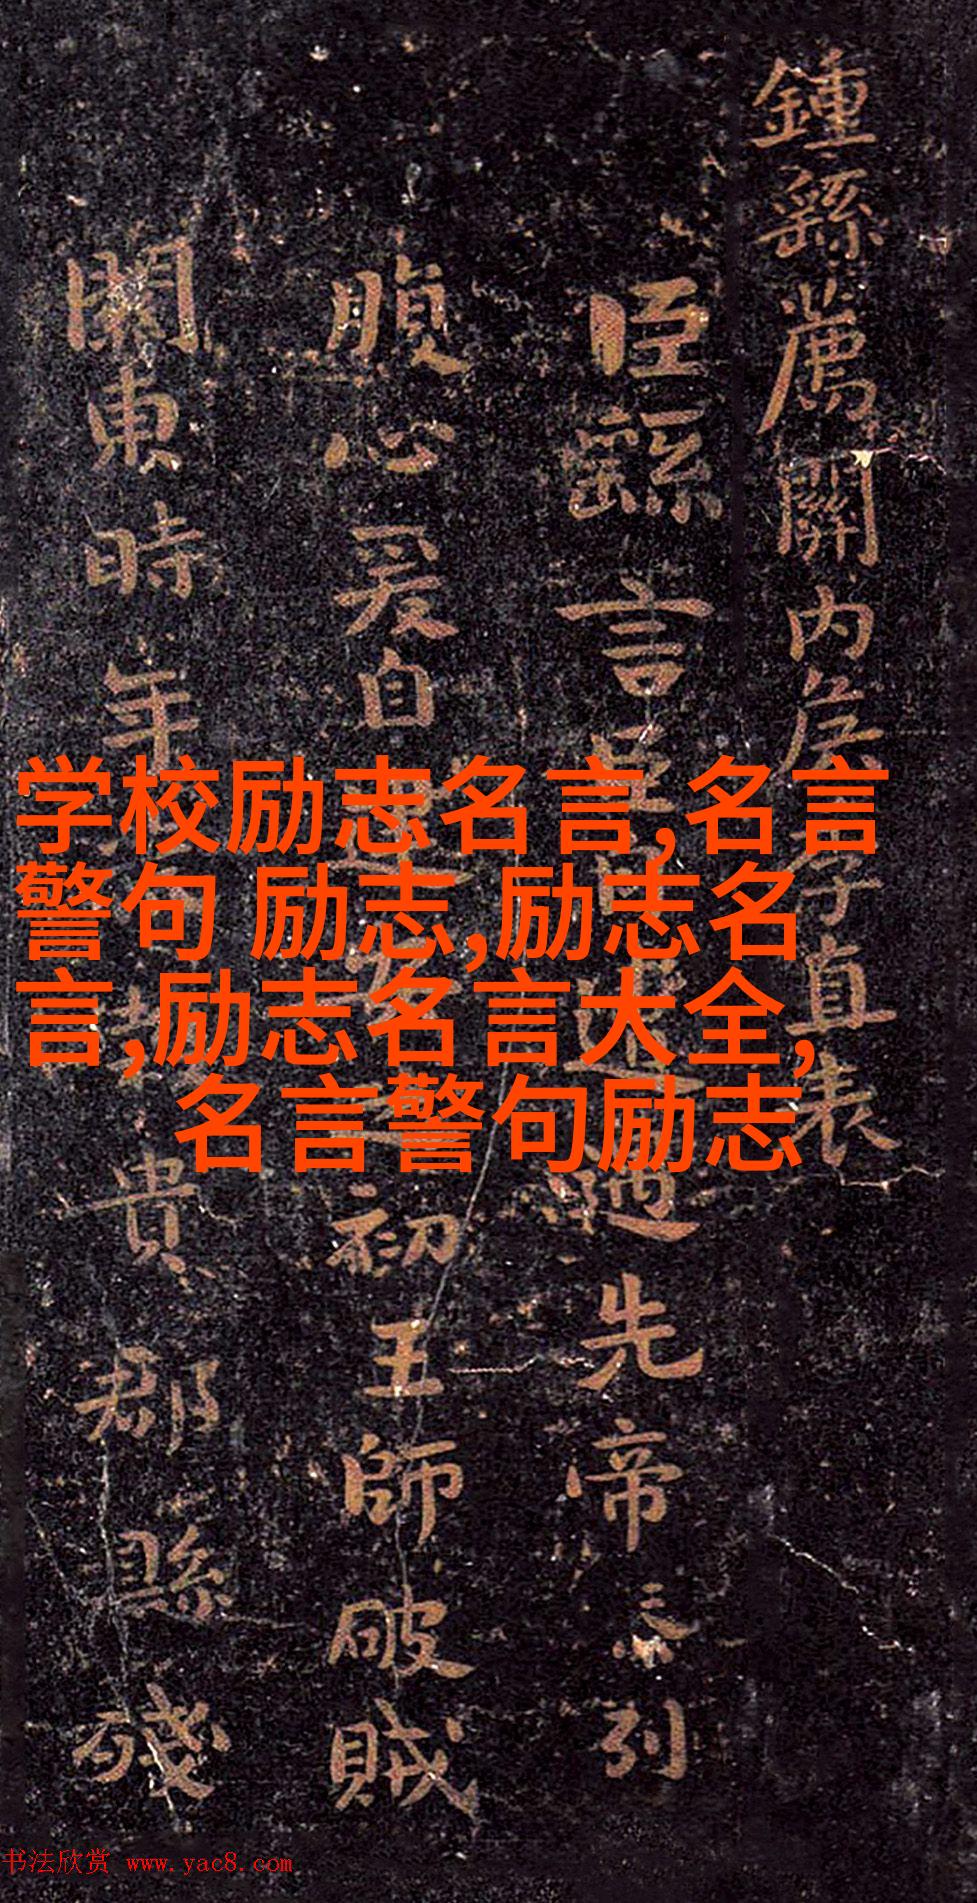 鍾繇薦關内矦季直表
臣繇言臣遇先帝忝列
腹心爰自初王師破賊
關東時年貴郡縣殘
学校励志名言,名言
警句 励志,励志名
言,励志名言大全,
名言警句励志
书法欣赏 www.yac8.com